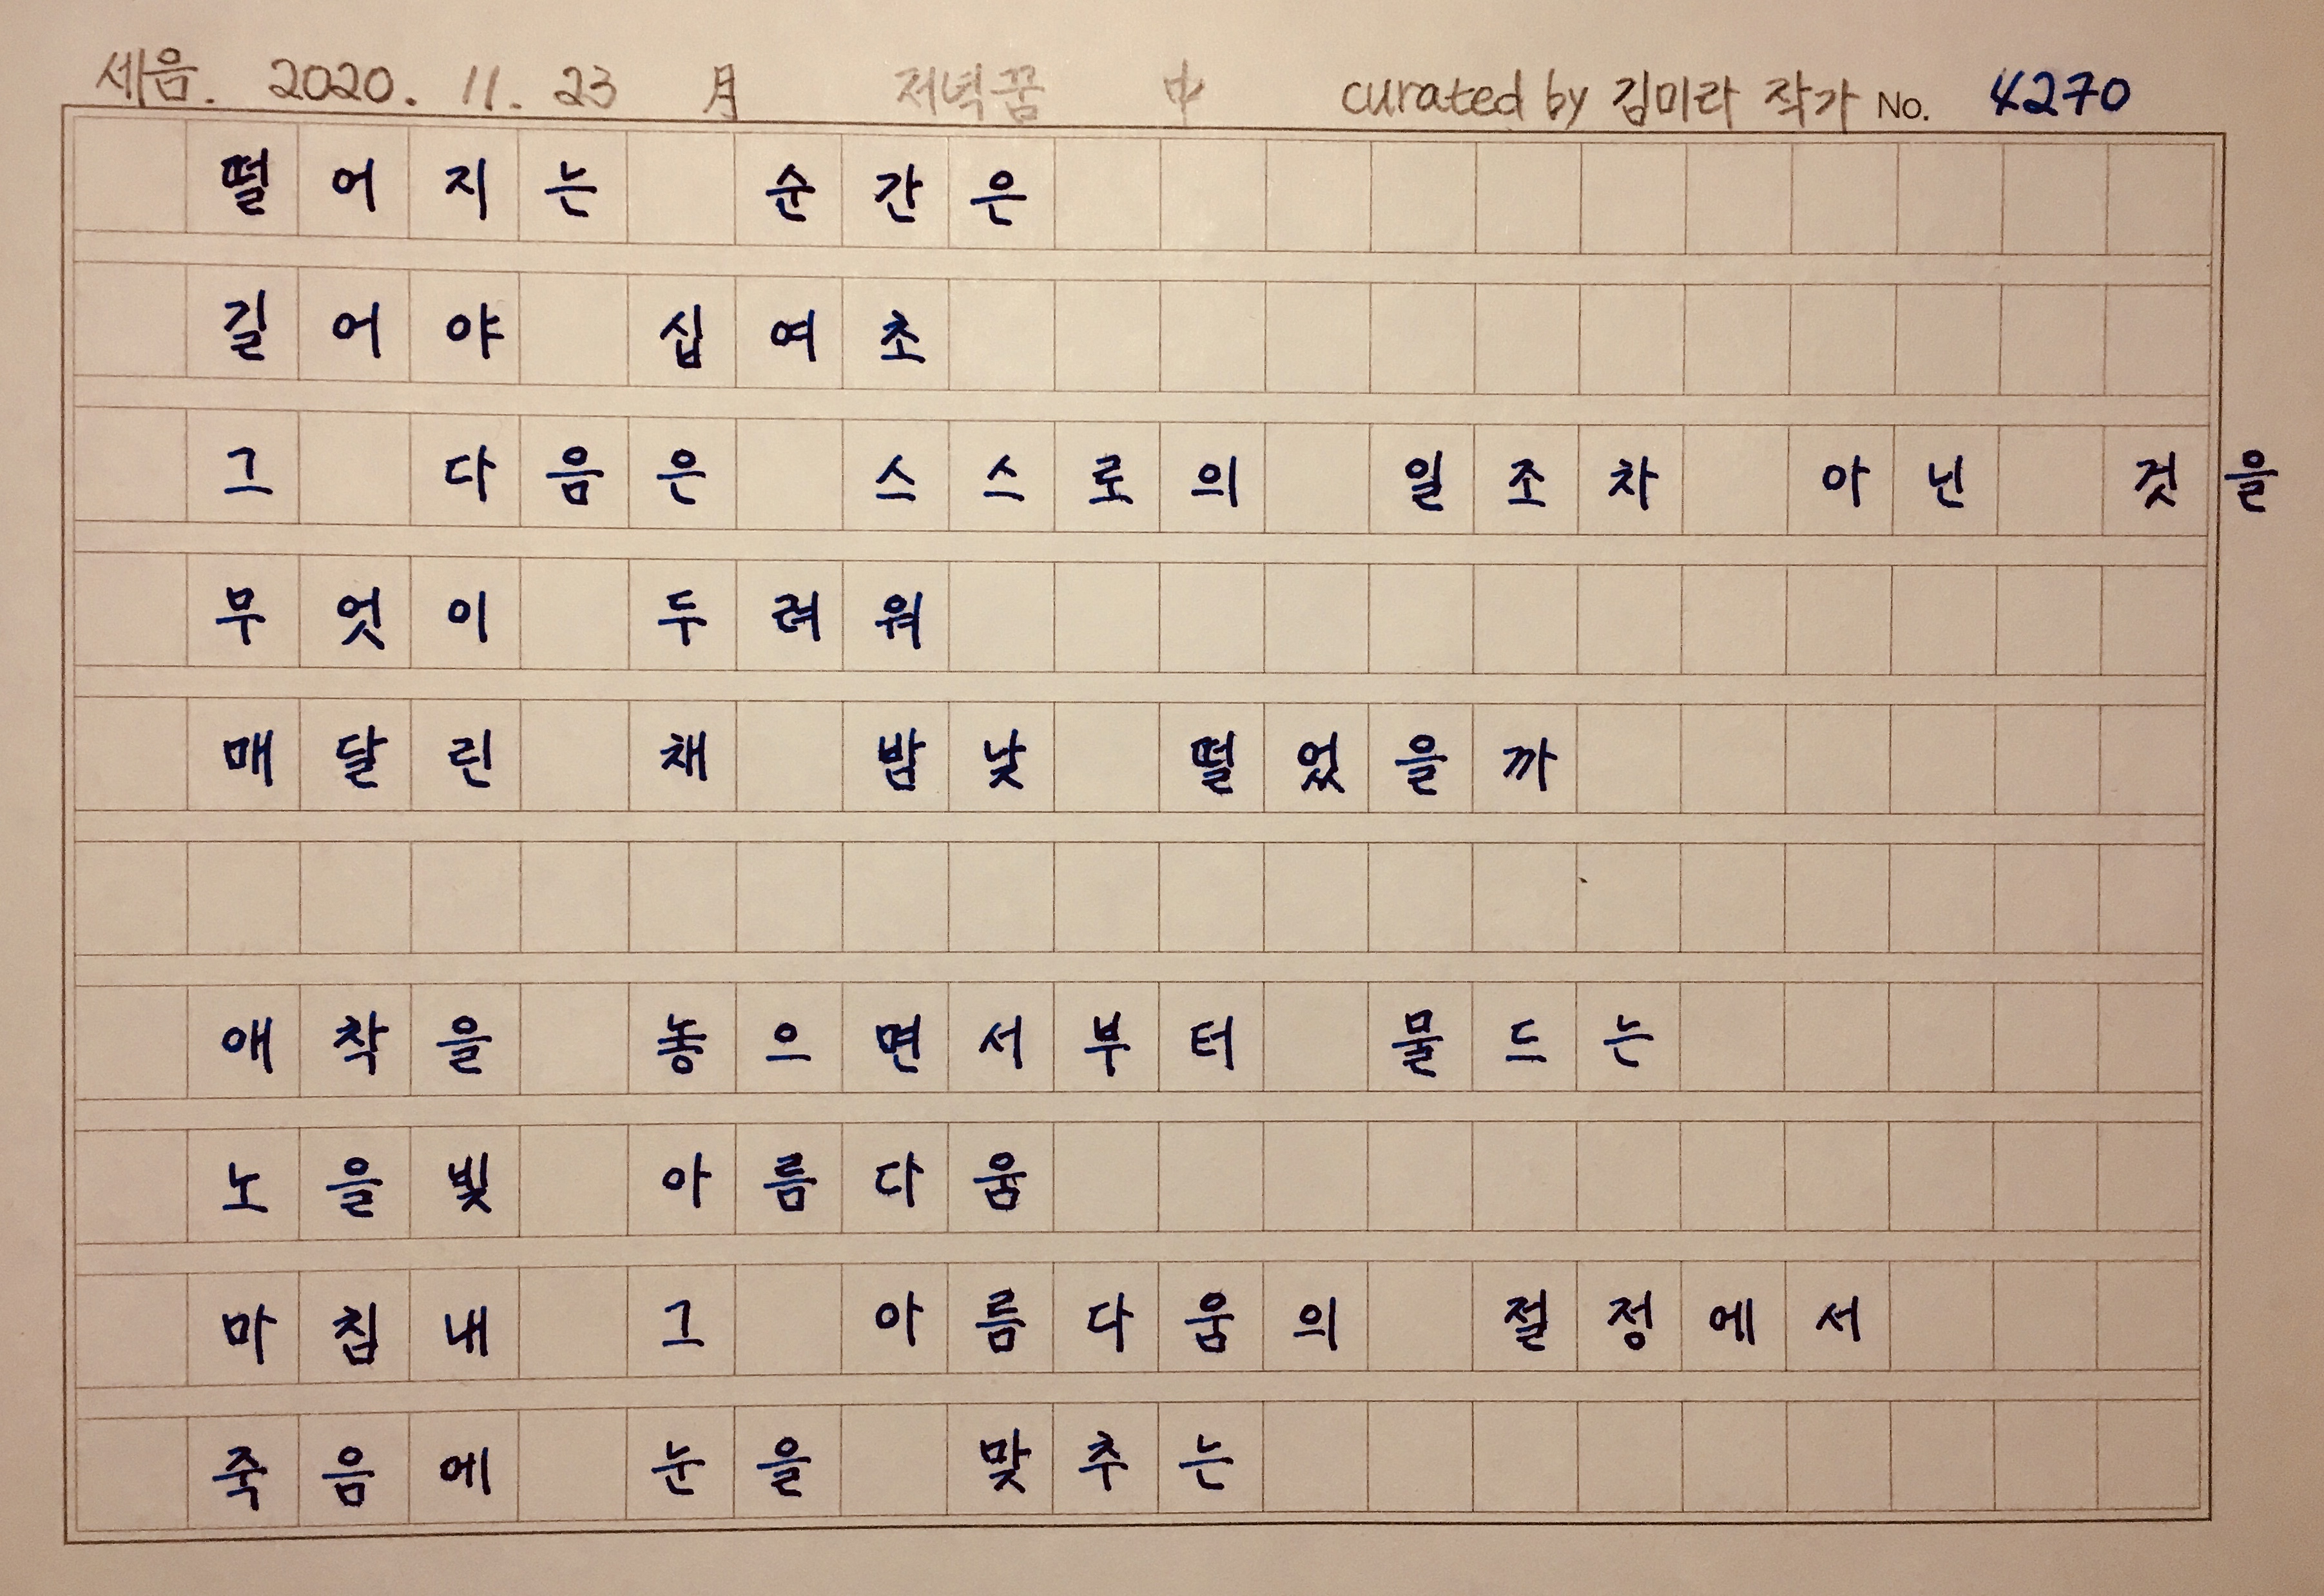 세음. 2020. 11. 23 月 저녁꿈 中 curated by 김미라 작가 No. 4270
떨어지는 순간은
길어야 십여초
그 다음은 스스로의 일조차 아닌 것을
무엇이 두려워
매달린 채 밤낮 떨었을까
애착을 놓으면서부터 물드는
노을빛 아름다움
마침내 그 아름다움의 절정에서
죽음에 눈을 맞추는